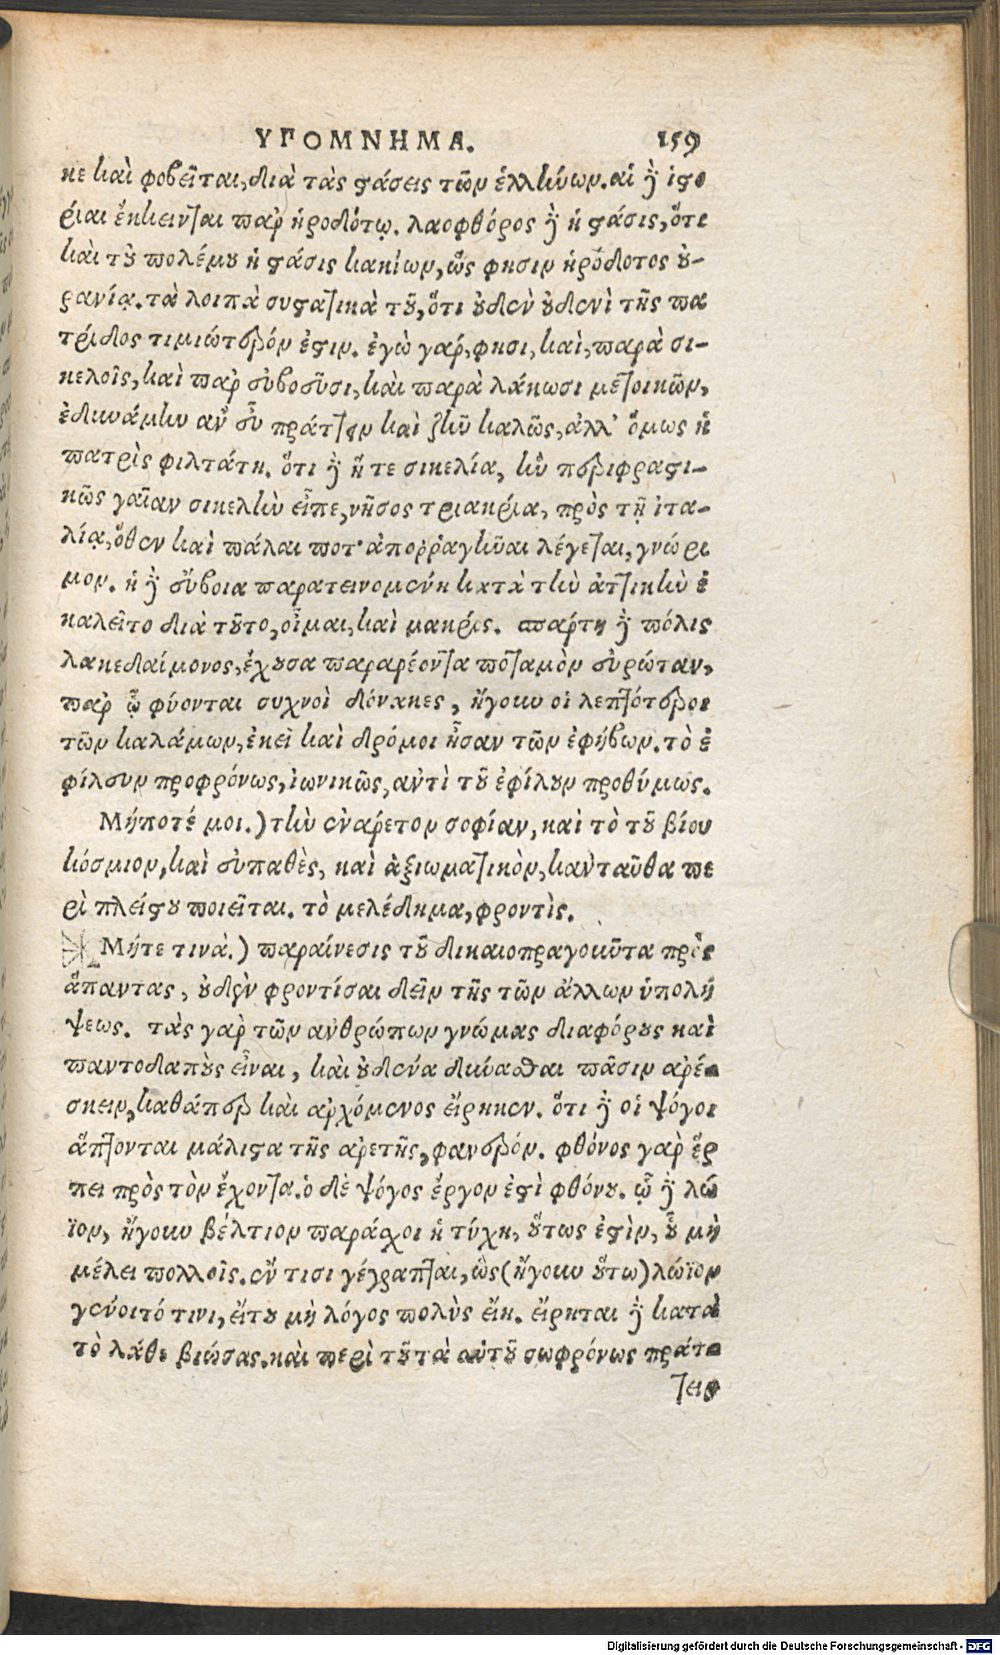 ΥΠΟΜΝΗΜΑ. 159
κε καὶ φοβεῖται, διὰ τὰς στάσεις τῶν ἑλλήνων. αἱ δὲ ἱστο
ρίαι ἔκκεινται παρ ἡροδότῳ. λαοφθόρος δὲ ἡ στάσις, ὅτι
καὶ τοῦ πολέμου ἡ στάσις κακίων, ὥς φησιν ἡρόδοτος οὐ-
ρανίᾳ. τὰ λοιπὰ συστατικὰ τοῦ, ὅτι οὐδὲν οὐδενὶ τῆς πα
τρίδος τιμιώτερόν ἐστιν. ἐγὼ γάρ, φησι, καὶ, παρὰ σι-
κελοῖς, καὶ παρ εὐβοεῦσι, καὶ παρὰ λάκωσι μετοικῶν,
ἐδυνάμην ἂν εὖ πράττειν καὶ ζῆν καλῶς, ἀλλ' ὅμως ἡ
πατρὶς φιλτάτη. ὅτι δὲ ἥ τε σικελία, ἣν περιφραστι-
κῶς γαῖαν σικελὴν εἶπε, νῆσος τριακρία, πρὸς τῇ ἰτα-
λίᾳ, ὅθεν καὶ πάλαι ποτ' ἀποῤῥαγῆναι λέγεται, γνώρι
μον. ἡ δὲ εὔβοια παρατεινομένη κατὰ τὴν ἀττικὴν ἐ
καλεῖτο διὰ τοῦτο, οἶμαι, καὶ μακρίς. σπάρτη δὲ πόλις
λακεδαίμονος, ἔχουσα παραρέοντα ποταμὸν εὐρώταν,
παρ ᾧ φύονται συχνοὶ δόνακες, ἤγουν οἱ λεπτότεροι
τῶν καλάμων, ἐκεῖ καὶ δρόμοι ἦσαν τῶν ἐφήβων. τὸ ἐ
φίλευν προφρόνως, ἰωνικῶς, ἀντὶ τοῦ ἐφίλουν προθύμως.
Μήποτέ μοι.) τὴν ἐνάρετον σοφίαν, καὶ τὸ τοῦ βίου
κόσμιον, καὶ εὐπαθὲς, καὶ ἀξιωματικὸν, κἀνταῦθα πε
ρὶ πλείστου ποιεῖται. τὸ μελέδημα, φροντὶς.
Μήτε τινὰ.) παραίνεσις τοῦ δικαιοπραγοῦντα πρὸς
ἅπαντας, οὐδὲν φροντίσαι δεῖν τῆς τῶν ἄλλων ὑπολή
ψεως. τὰς γὰρ τῶν ἀνθρώπων γνώμας διαφόρους καὶ
παντοδαποὺς εἶναι, καὶ οὐδένα δύνασθαι πᾶσιν ἀρέ-
σκειν, καθάπερ καὶ ἀρχόμενος εἴρηκεν. ὅτι δὲ οἱ ψόγοι
ἅπτονται μάλιστα τῆς ἀρετῆς, φανερόν. φθόνος γὰρ ἕρ
πει πρὸς τὸν ἔχοντα. ὁ δὲ ψόγος ἔργον ἐστὶ φθόνου. ᾧ δὲ λώ
ϊον, ἤγουν βέλτιον παράσχοι ἡ τύχη, οὕτως ἐστὶν, οὗ μὴ
μέλει πολλοῖς. ἔν τισι γέγραπται, ὣς (ἤγουν οὕτω) λώϊον
γένοιτό τινι, εἴ του μὴ λόγος πολὺς εἴη. εἴρηται δὲ κατὰ
τὸ λάθε βιώσας. καὶ περὶ τοῦ τὰ αὑτοῦ σωφρόνως πράτ-
τειν
Digitalisierung gefördert durch die Deutsche Forschungsgemeinschaft - DFG